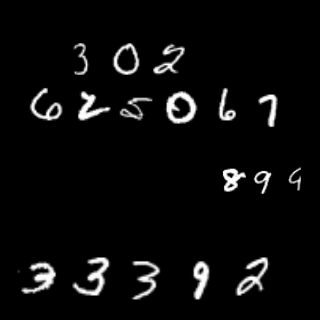 302
625067
899
33392